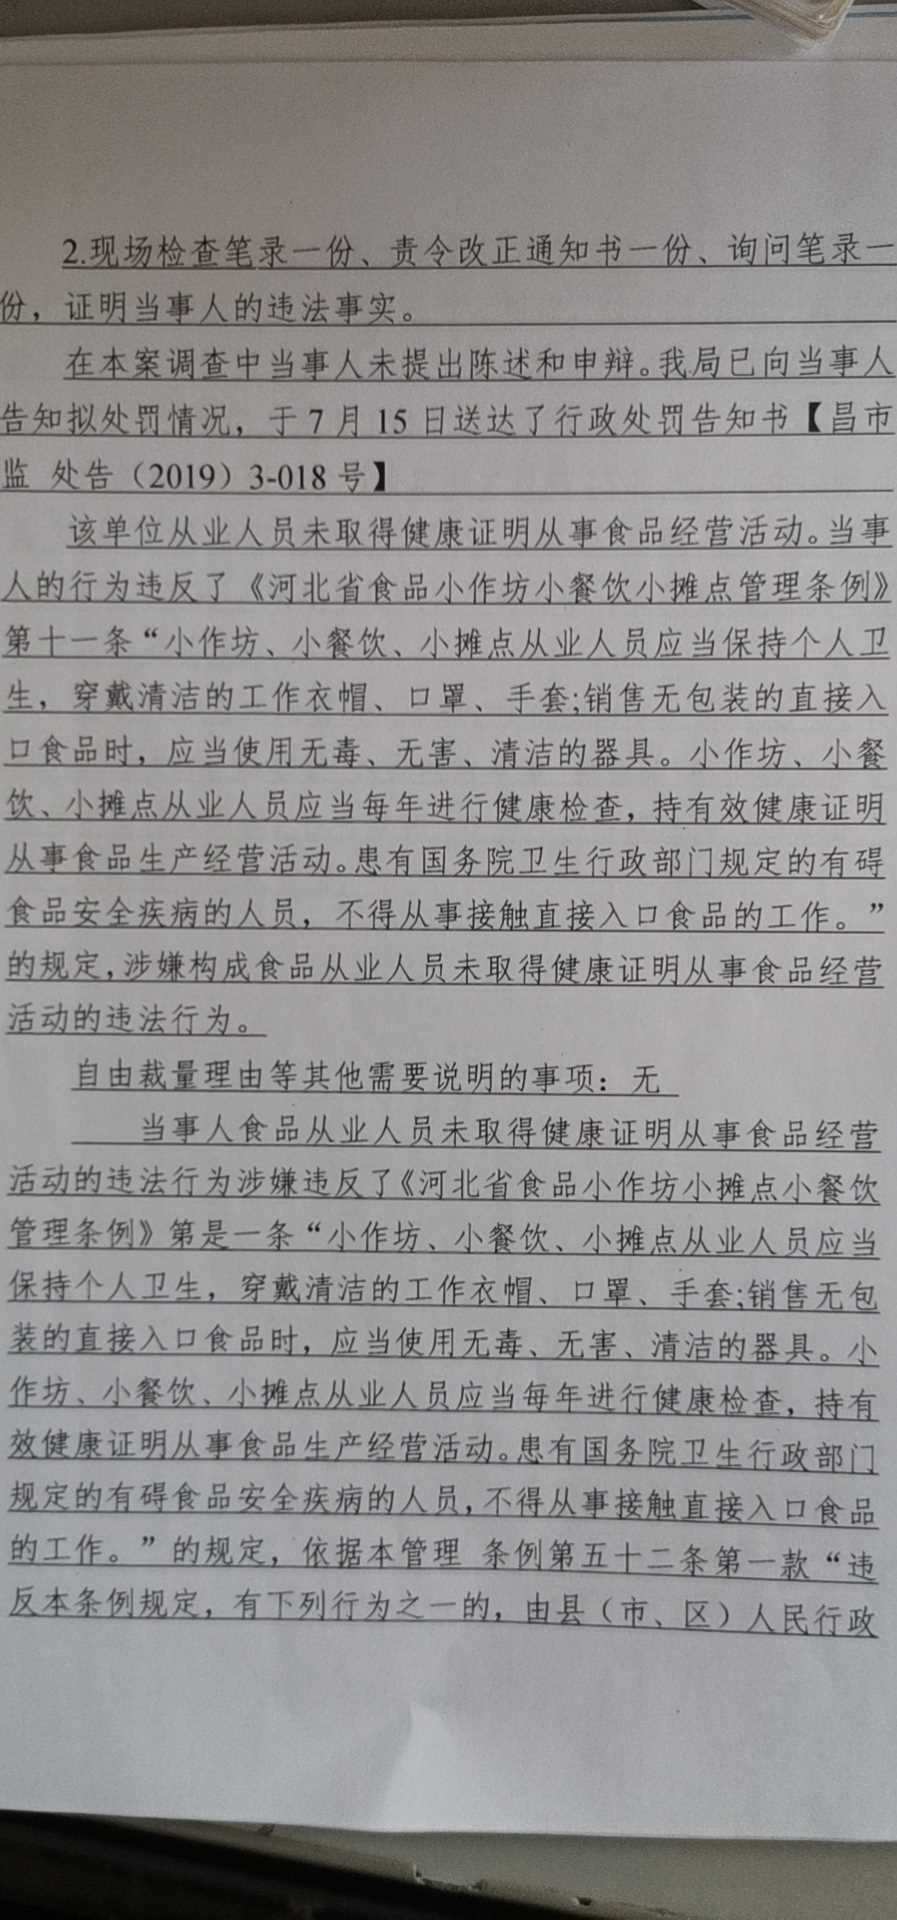 2.现场检查笔录一份、责令改正通知书一份、询问笔录一
份，证明当事人的违法事实。
在本案调查中当事人未提出陈述和申辩。我局已向当事人
告知拟处罚情况，于7月15日送达了行政处罚告知书【昌市
监 处告（2019）3-018号】
该单位从业人员未取得健康证明从事食品经营活动。当事
人的行为违反了《河北省食品小作坊小餐饮小摊点管理条例》
第十一条“小作坊、小餐饮、小摊点从业人员应当保持个人卫
生，穿戴清洁的工作衣帽、口罩、手套;销售无包装的直接入
口食品时，应当使用无毒、无害、清洁的器具。小作坊、小餐
饮、小摊点从业人员应当每年进行健康检查，持有效健康证明
从事食品生产经营活动。患有国务院卫生行政部门规定的有碍
食品安全疾病的人员，不得从事接触直接入口食品的工作。”
的规定,涉嫌构成食品从业人员未取得健康证明从事食品经营
活动的违法行为。
自由裁量理由等其他需要说明的事项：无
当事人食品从业人员未取得健康证明从事食品经营
活动的违法行为涉嫌违反了《河北省食品小作坊小摊点小餐饮
管理条例》第是一条“小作坊、小餐饮、小摊点从业人员应当
保持个人卫生，穿戴清洁的工作衣帽、口罩、手套;销售无包
装的直接入口食品时，应当使用无毒、无害、清洁的器具。小
作坊、小餐饮、小摊点从业人员应当每年进行健康检查，持有
效健康证明从事食品生产经营活动。患有国务院卫生行政部门
规定的有碍食品安全疾病的人员,不得从事接触直接入口食品
的工作。”的规定，依据本管理 条例第五十二条第一款“违
反本条例规定，有下列行为之一的，由县（市、区）人民行政